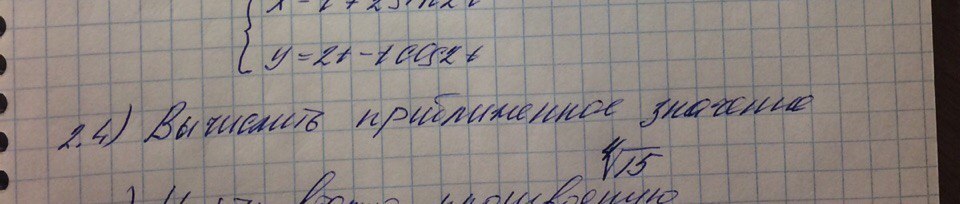 y=2t-tcos2t
2.4) Вычислить приближенное значение
∜15